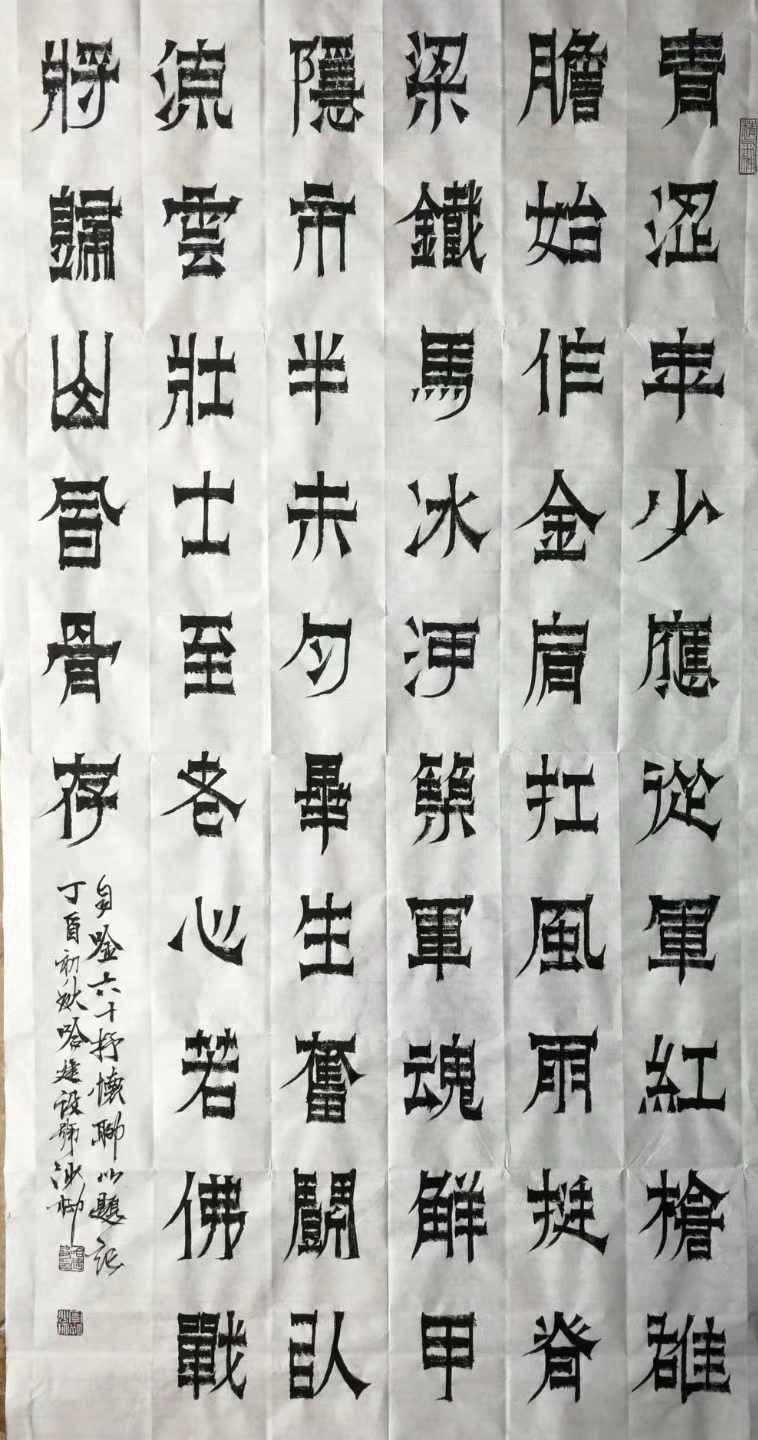 青涩年少應從軍紅槍雄
膽始作金肩扛風雨挺脊
梁鐵馬冰河築軍魂解甲
隱市半未勿畢生奮鬭臥
涼雲壯士至老心若佛戰
將歸山骨存
自吟六十抒懷聊以題記
丁酉初秋哈建設